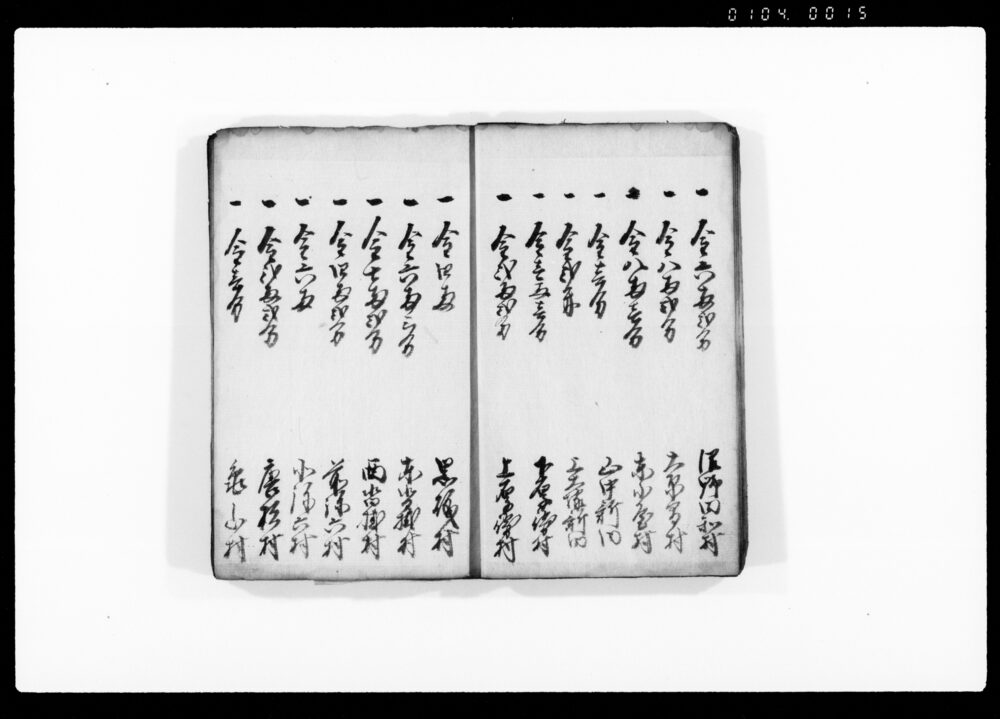 0104.0015
一 金六両弐分 沼野田和村
一 金八両弐分 大泉
一 金八両壱分 東小屋村
一 金壱分 山中新田
一 金弐朱 三本塚新田
一 金壱両壱分 下厚崎村
一 金弐両弐分 上厚崎村
一 金四両 黒磯村
一 金六両三分 東沓掛村
一 金七両弐分 西沓掛村
一 金四両弐分 前弥六村
一 金六両 小弥六村
一 金弐両弐分 唐杉村
一 金壱分 亀山村